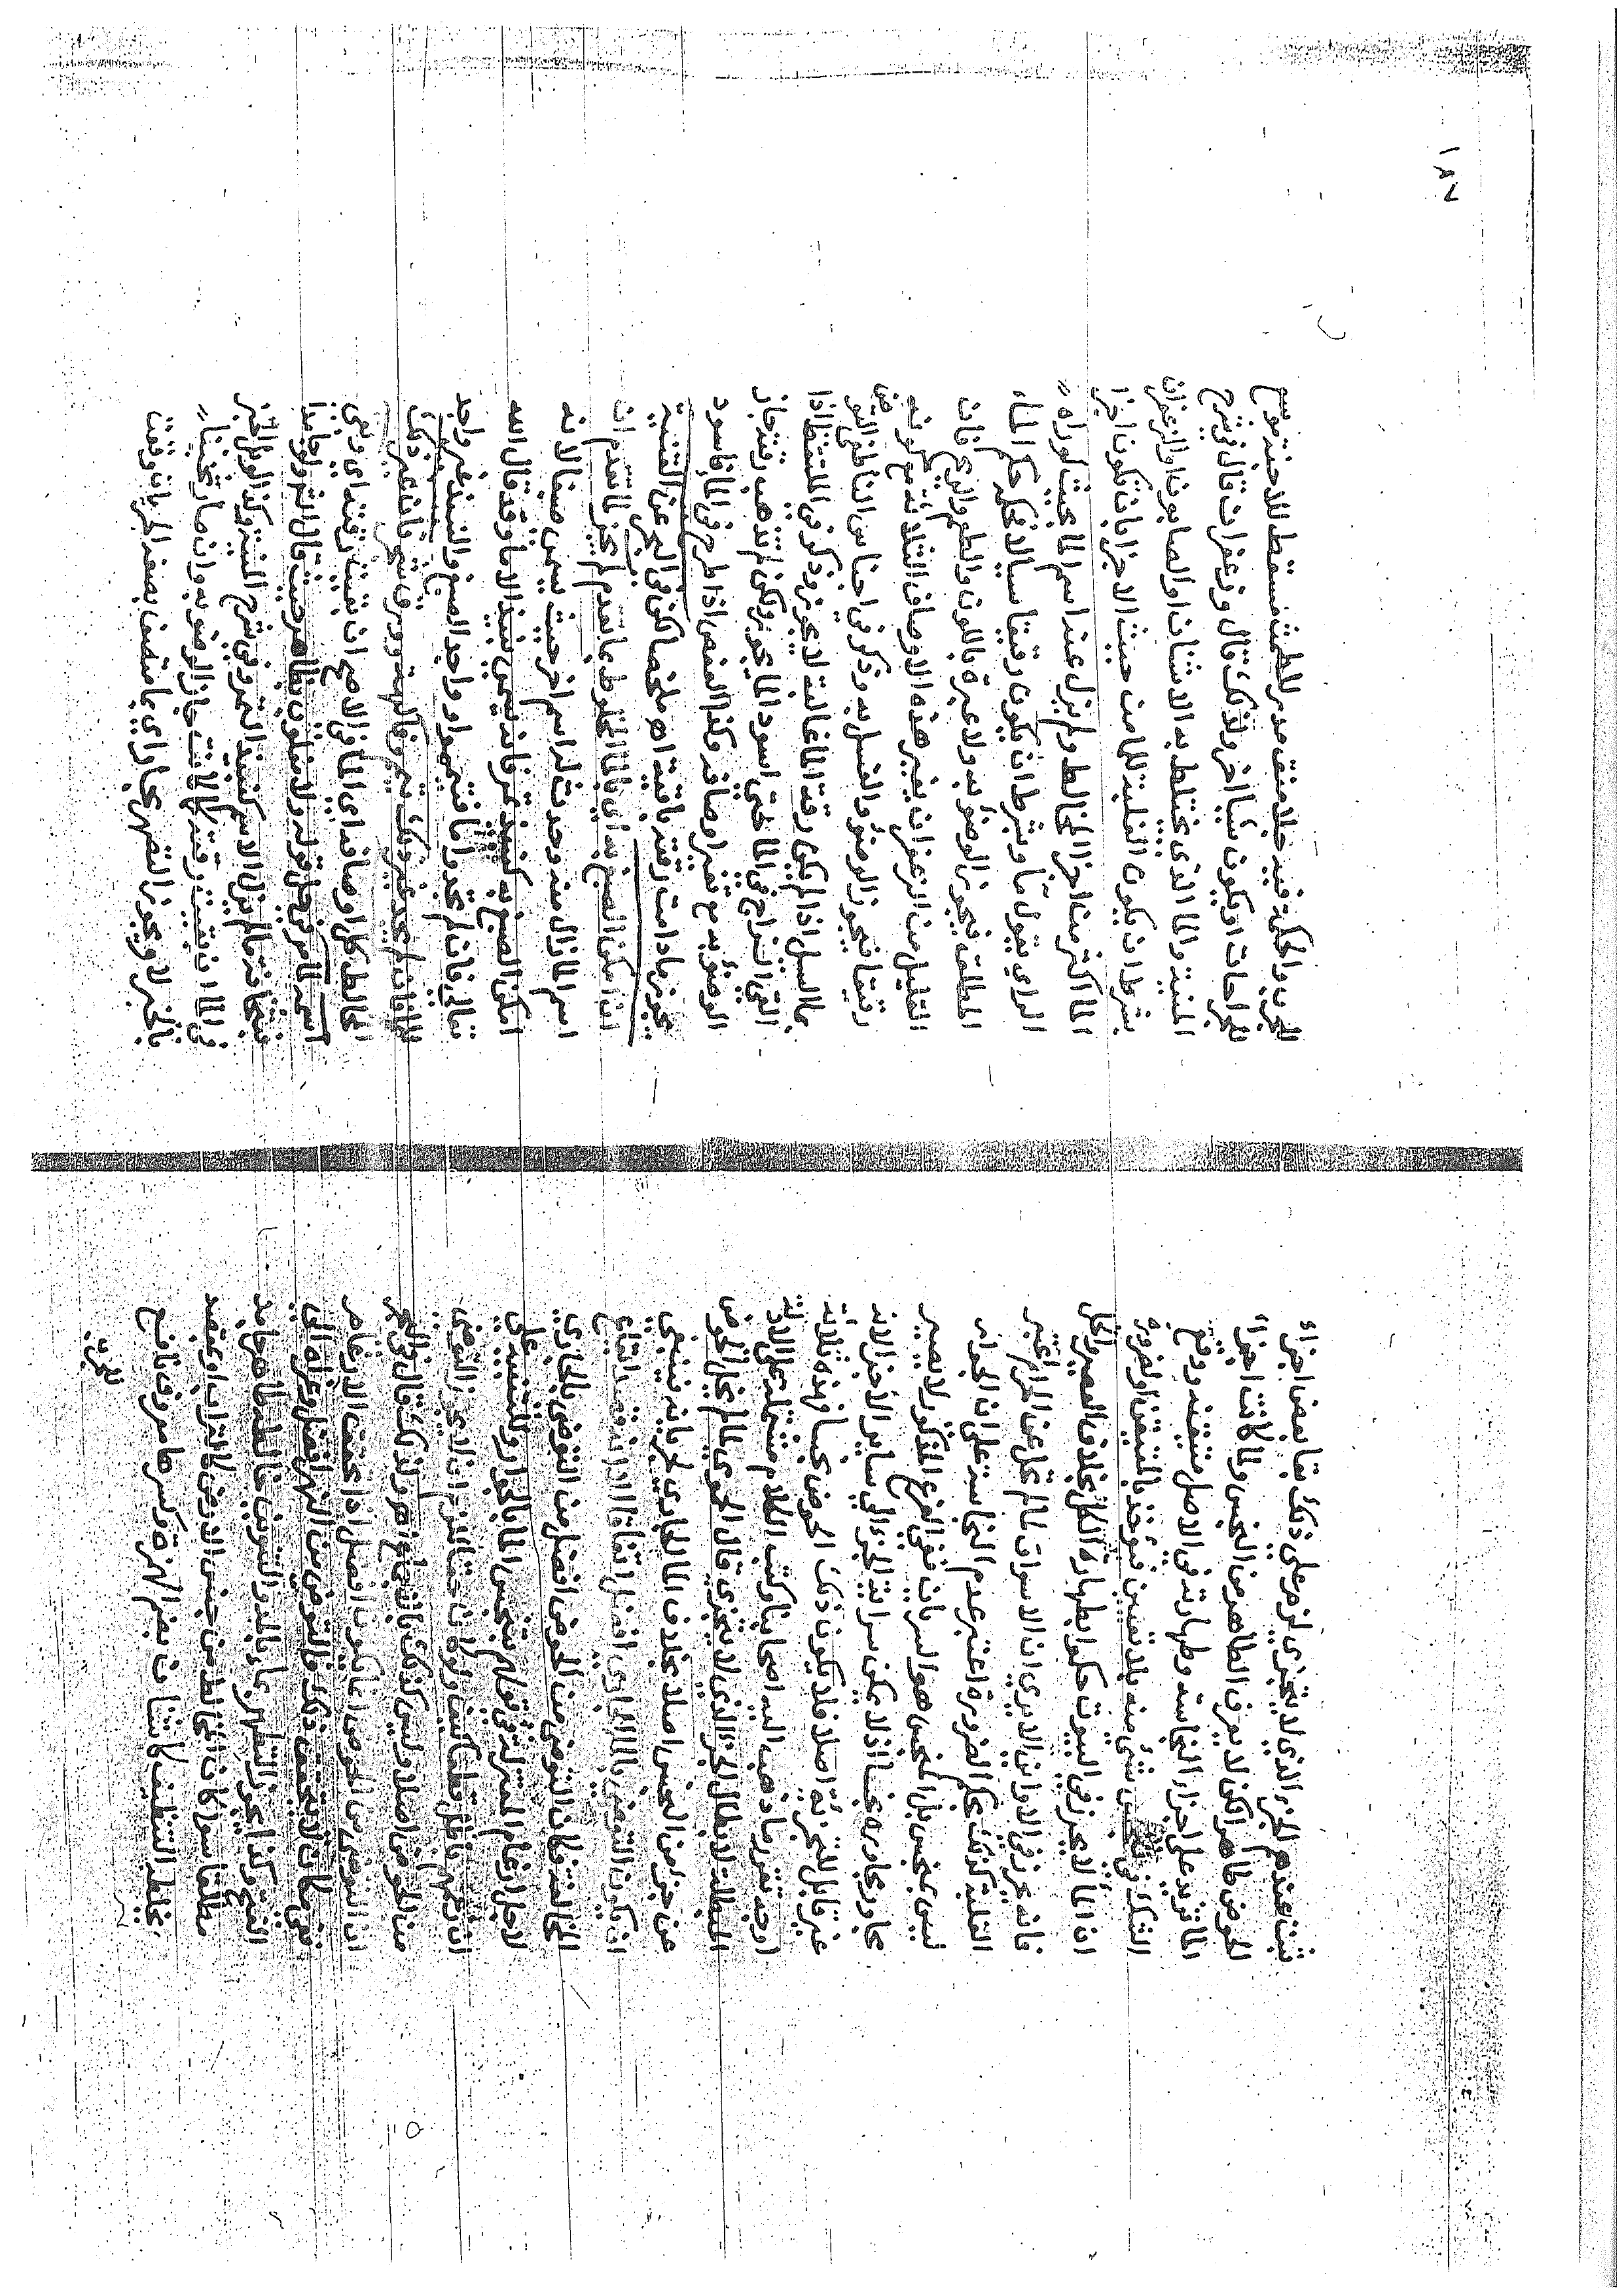 ثبت عندهم الجزء الذي لا يتجزى لزم على ذلك بقا بعض اجزاء
الحوض طاهرا لكن لا يعرف الطاهر من النجس ولما كانت اجزاء
الماء تزيد على اجزاء النجاسة وطهارته في الاصل متيقنة ووقع
الشك في تنجس شيء منه بلا تعيين فيؤخذ بالمتيقن والضرورة
ان الماء لا يعز في البيوت حكوا بطهارة الكل بخلاف العصير والخل
فانه يعز في الاواني الا يري ان الاسواق لما لم تخل عن الحرام اعتبر
الغلبة كذلك بحكم الضرورة اعتبر عدم النجاسة على ان الجوار
ليس بنجس بل المنجس هو السريان ففي الفرع المذكور لا يصير
مجاور مجاوره نجسا اذ لا يمكن سراية الجزء الي ساير الاجزاء لانه
غير قابل للتجزئة اصلا فلا يكون ذلك الحوض نجسا فهذه ثلاثة
اوجه تقرر ما ذهب اليه اصحابنا وكتب الكلام مشتملة على الادلة
المبطلة لابطال الجزء الذي لا يتجزى قال الحموي لما لم يخل الحوض
عن جزء من النجس اصلا بخلاف الماء الجاري لجريانه ينبغي
ان يكون التوضي بالماء الجاري افضل اتفاقا اذ لا اقصد ايقاع
المخالفة فكان التوضي من الحوض افضل من التوضي بالجاري
لاجل ارغام المعتزلة في قولهم بتنجس الماء بالجوار وللتنبيه على
ان زعمهم باطل قطعا كيف ولولاه حقا للزم ان لا يجوز التوضي
من الحوض اصلا وليس كذلك بالاجماع اهـ ولذلك قال في البحر
ان التوضي من الحوض انما يكون افضل اذا تحقق الارغام
ففي مكان لا يتحقق ذلك فالتوضي من النهر افضل وعزاه الى
الفتح وكذا يجوز التطهير بماء بالمد والتنوين خالطه طاهر جامد
مطلقا سوا كان المخالط من جنس الارض كالتراب او يقصد
بخلطه التنظيف كاشنان بضم الهمزة وكسرها معروف نافع
للجرب
للجرب والحكة فيه جلا منق مدر للطمث مسقط للاجنة توضع
للجراحات او يكون شيئا اخر ولذلك قال وزعفران قال في شرح
المنية والماء الذي يختلط به الاشنان او الصابون او الزعفران
بشرط ان يكون الغلبة للماء من حيث الاجزاء بان تكون اجزاء
الماء اكثر من اجزاء المخالط ولم يزل عنه اسم الماء بحيث لو راه
الراي يقول ماء وبشرط ان يكون رقيقا سيالا فحكمه حكم الماء
المطلق يجوز الوضوء به ولا عبرة باللون والطعم والريح فان
القليل من الزعفران يغير هذه الاوصاف الثلاثة مع كونه
رقيقا فيجوز الوضوء والغسل به وذكر في اجناس الناطفي التوضي
بماء السيل اذا لم يكن رقة الماء غالبة لا يجوز وذكر في الملتقط اذا
القي الزاج في الماء حتى اسود الماء يجوز ولكن لم تذهب رقته جاز
الوضوء به مع تغير اوصافه وكذا العفص اذا طرح في الماء فاسود
يجوز ما دامت رقته باقية اهـ ملخصا لكن في البحر عن القنية
ان امكن الصبغ به اي بالماء المخلوط بما تقدم لم يجز لما تقدم ان
اسم الماء زال عنه وحدث له اسم اخر حيث يسمى صبغا لانه
امكن الصبغ به كنبيذ تمر فانه يسمى نبيذا لا ماء وقد قال الله
تعالى فان لم تجدوا ماء فتيمموا وواجد الصبغ والنبيذ غير واجد
للماء
المخالط كل اوصافه اي الماء في الاصح ان بقيت رقته اي وبقي
اسمه لما مر في محل قوله ولا مغلوب بطاهر حيث قال الثم ولو جامدا
فبثخانته ما لم يزل الاسم كنبيذ التمر وفي شرح المنية وكذا لو بل الخبز
في الماء ان بقيت رقته كما كانت جاز الوضوء به وان صار ثخينا
بالخبز لا ويجوز التطهير بجار اي بماء متصف بصفة الجريان وقعت